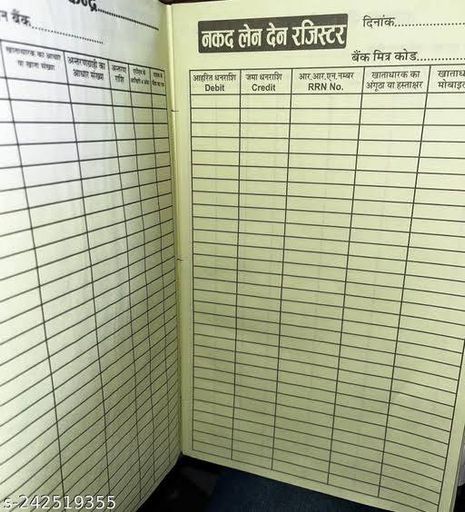 न बैंक.............
खाताधारक का आधार
या खाता संख्या
अन्तरणग्राही का
आधार संख्या
अन्तरण
राशि
नकद लेन देन रजिस्टर
दिनांक...................
बैंक मित्र कोड............
आहरित धनराशि
Debit
जमा धनराशि
Credit
आर.आर.एन.नम्बर
RRN No.
खाताधारक का
अंगूठा या हस्ताक्षर
खाताध
मोबाइल
s-242519355